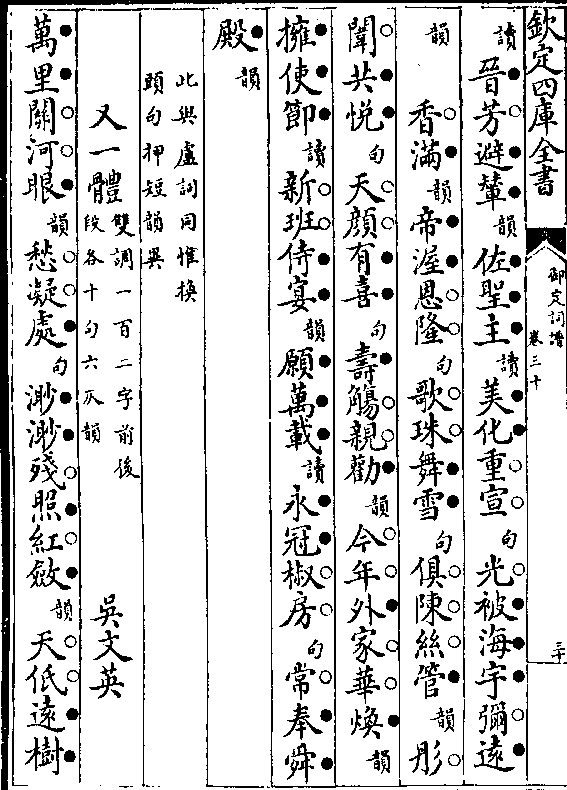 欽定四庫全書
御定詞譜
卷三十
三十
讀晉芳避輦韻佐聖主讀美化重宣句光被海宇彌遠
韻香滿韻帝渥恩隆句歌珠舞雪句俱陳絲管韻彤
闈共悅句天顔有喜句壽觴親勸韻今年外家華煥韻
擁使節讀新班侍宴韻願萬載讀永冠椒房句常奉舜
殿韻
此與盧詞同惟換
頭句押短韻異
又一體 雙調一百二字前後
段各十句六仄韻 吳文英
萬里關河眼韻愁凝處句渺渺殘照紅斂韻天低遠樹